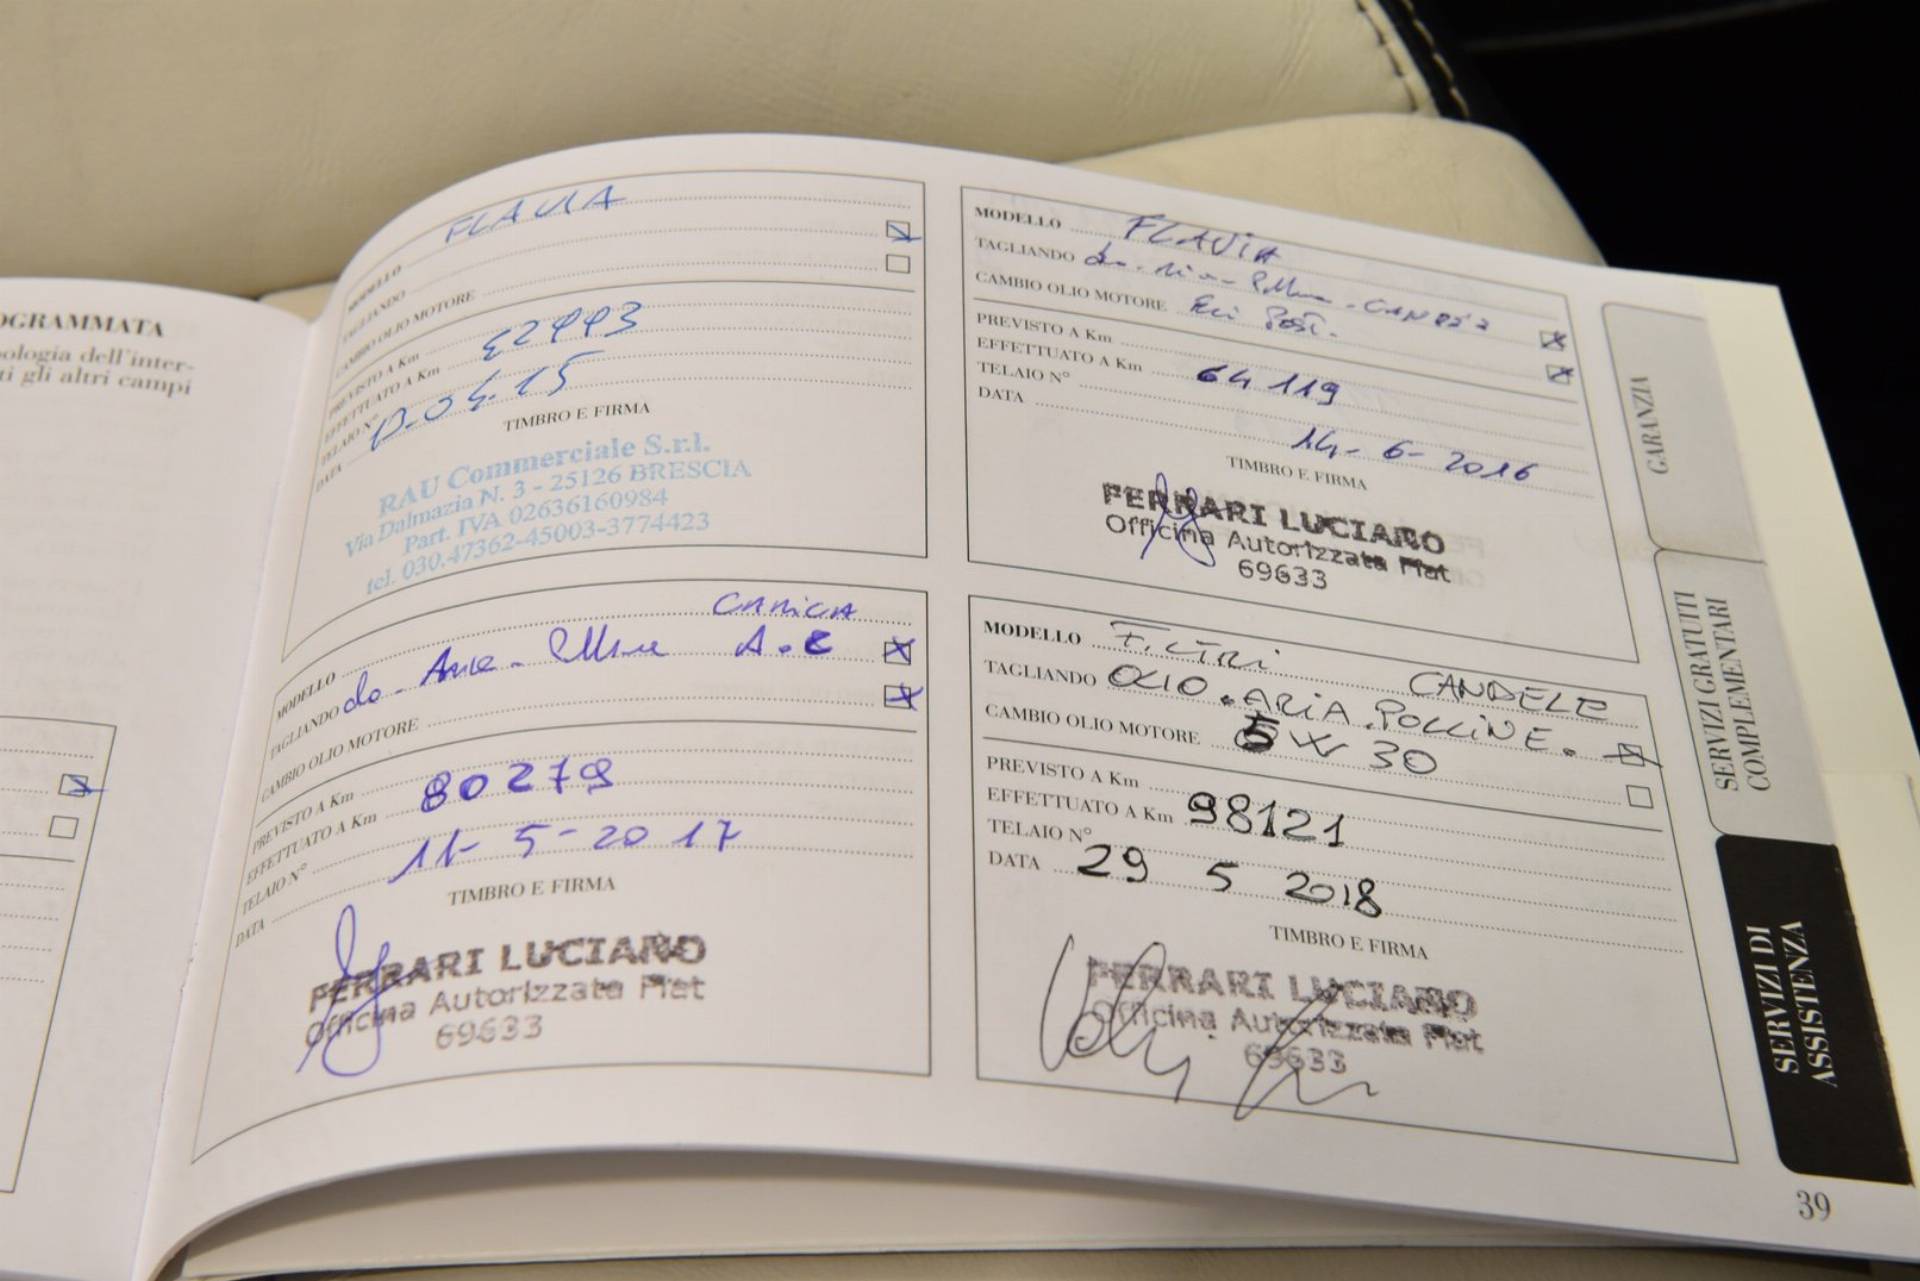 OGRAMMATA
ologia dell'inter-
ti gli altri campi
MODELLO FLAVIA
TAGLIANDO
CAMBIO OLIO MOTORE
PREVISTO A Km
EFFETTUATO A Km
TELAIO N°
DATA 13.04.15
TIMBRO E FIRMA
RAU Commerciale S.r.l.
Via Dalmazia N. 3 - 25126 BRESCIA
Part. IVA 02636160984
tel. 030.47362-45003-3774423
MODELLO FLAVIA
TAGLIANDO
CAMBIO OLIO MOTORE
PREVISTO A Km
EFFETTUATO A Km 64119
TELAIO N°
DATA 14-6-2016
TIMBRO E FIRMA
FERRARI LUCIANO
Officina Autorizzata Fiat
69633
MODELLO
TAGLIANDO A.C
CAMBIO OLIO MOTORE
PREVISTO A Km
EFFETTUATO A Km 80279
TELAIO N°
DATA 11-5-2017
TIMBRO E FIRMA
FERRARI LUCIANO
Officina Autorizzata Fiat
69633
MODELLO FILTRI CANDELE
TAGLIANDO OLIO.ARIA.POLLINE.
CAMBIO OLIO MOTORE 5W30
PREVISTO A Km
EFFETTUATO A Km 98121
TELAIO N°
DATA 29 5 2018
TIMBRO E FIRMA
FERRARI LUCIANO
Officina Autorizzata Fiat
69633
GARANZIA
SERVIZI GRATUITI
COMPLEMENTARI
SERVIZI DI
ASSISTENZA
39